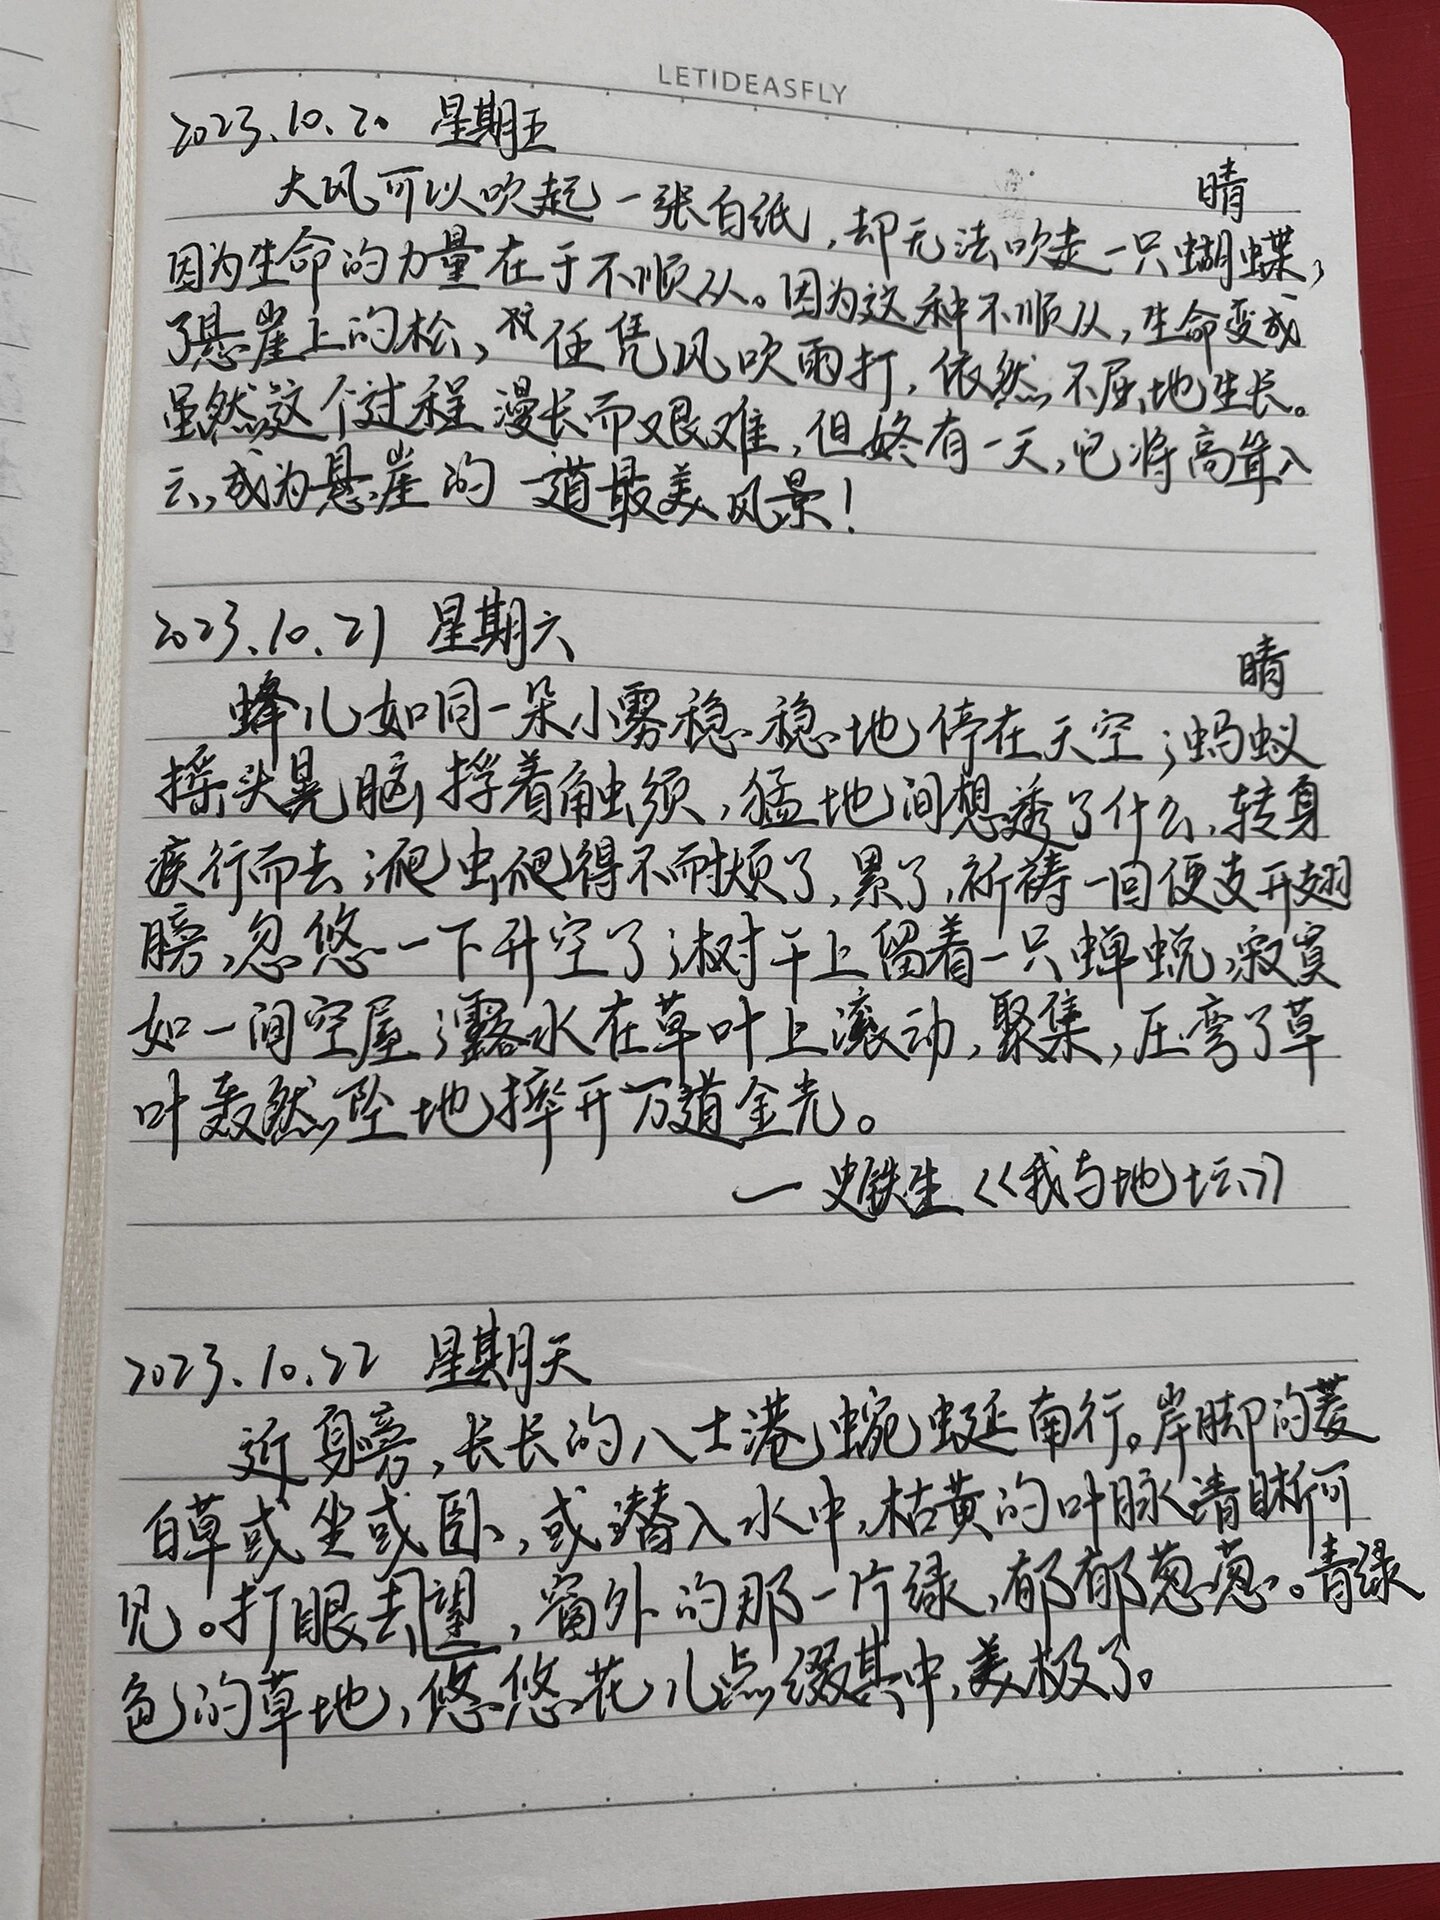 LETIDEASFLY
2023.10.20 星期五
晴
大风可以吹起一张白纸,却无法吹走一只蝴蝶,
因为生命的力量在于不顺从。因为这种不顺从,生命变成
了悬崖上的松,任凭风吹雨打,依然不屈地生长。
虽然这个过程漫长而艰难,但终有一天,它将高耸入
云,成为悬崖的一道最美风景!
2023.10.21 星期六
晴
蜂儿如同一朵小雾稳稳地停在天空;蚂蚁
摇头晃脑捋着触须,猛地间想透了什么,转身
疾行而去;爬虫爬得不耐烦了,累了,祈祷一回便支开翅
膀,忽悠一下升空了;树干上留着一只蝉蜕,寂寞
如一间空屋;露水在草叶上滚动,聚集,压弯了草
叶轰然坠地摔开万道金光。
一史铁生《我与地坛》
2023.10.22 星期天
近身旁,长长的八士港蜿蜒南行。岸脚的茭
白草或坐或卧,或潜入水中,枯黄的叶脉清晰可
见。打眼去望,窗外的那一片绿,郁郁葱葱。青绿
色的草地,悠悠花儿点缀其中,美极了。